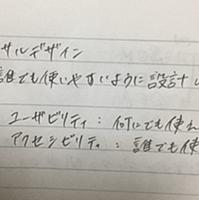 サルデザイン
誰でも使いやすいように設計し
ユーザビリティ：何にでも使え
アクセシビリティ：誰でも使